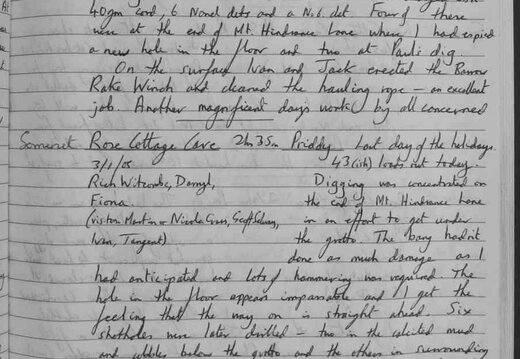 40gm cord, 6 Nonel dets and a No.6 det. Four of these
were at the end of Mt. Hindrance Lane where I had espied
a new hole in the floor and two at Paul's dig.
On the surface Ivan and Jack erected the Barrow
Rake Winch and cleaned the hauling rope - an excellent
job. Another magnificent day's work by all concerned
Somerset Rose Cottage Cave 2hr 35m Priddy Last day of the holidays.
3/1/05 43(ish) loads out today.
Rich Witcombe, Darryl, Digging was concentrated on
Fiona. the end of Mt. Hindrance Lane
(visitors Martin Nicola Grass, Geoff in an effort to get under
Ivan, Tangent) the grotto. The bang hadn't
done as much damage as I
had anticipated and lots of hammering was required. The
hole in the floor appears impassable and I get the
feeling that the way on is straight ahead. Six
shotholes were later drilled - two in the calcited mud
and cobbles below the grotto and the others in surrounding